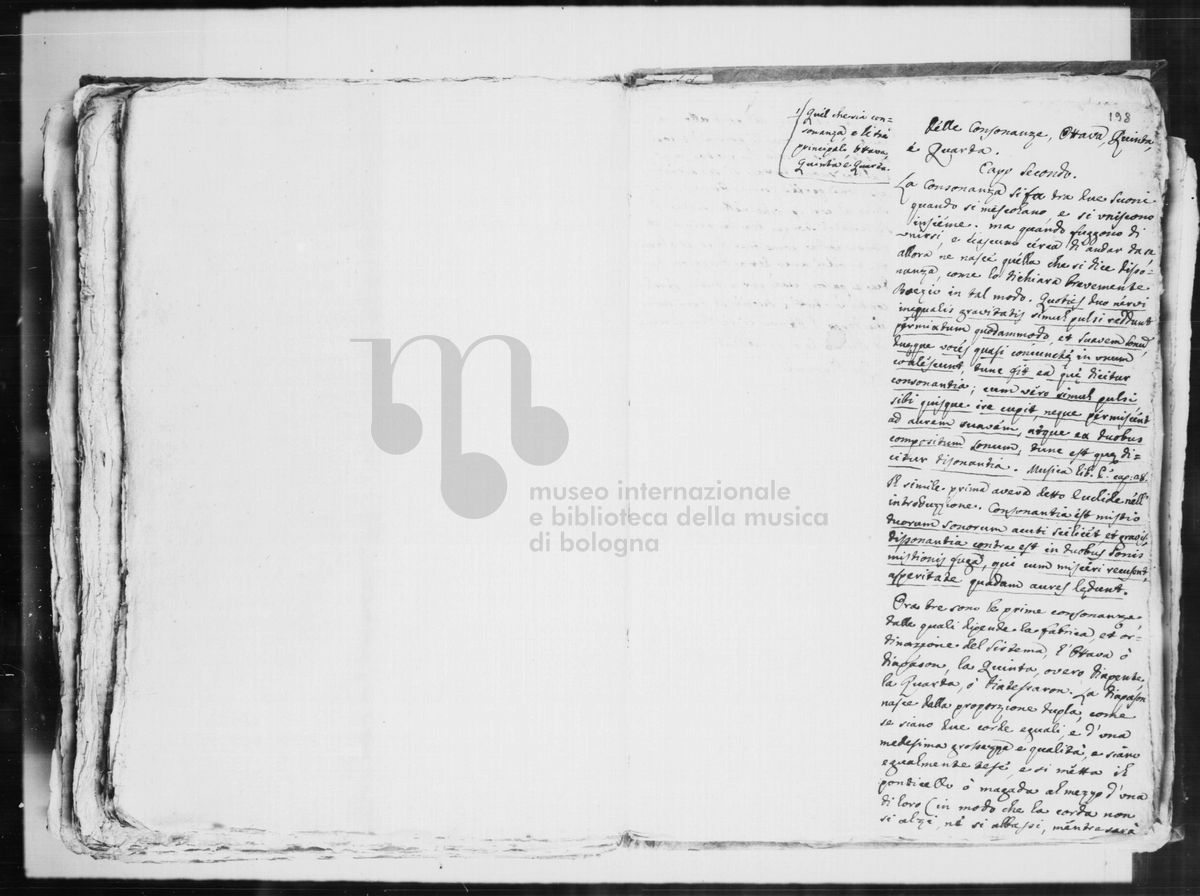 198
1/ Quél che sia con-
sonanza, e le trè
principali ottava,
Quinta è Quarta.
Délle Consonanze, Ottava, Quinta,
è Quarta.
Capp Secondo.
La Consonanza si fa tra due suoni
quando si méscolano, e si vniscono
insiéme. ma quando fuggono di
vnirsi, e ciascuno cérca di andar da sé
allora ne nasce quélla che si dice disso-
nanza, come lo dichiara brevemente
Boezio in tal modo. Quotiés duo nérvi
inequalis gravitatis simul pulsi reddunt
pérmixtum quodammodo, et suavem sonũ,
duęque vocés quasi coniunctę in vnum
coaléscunt, tunc fit ea quę dicitur
consonantia; cum véro simul pulsi
sibi quisque ire cupit, neque pérmiscént
ad aurem suavém, atque ex duobus
compositum sonum, tunc est quę di-
citur disonantia. Musica lib. P.º cap: 28.
Il simile prima avera detto Euclide néll'
introduzzione. Consonantia est mistio
duorum sonorum acuti scilicét et gravis,
dissonantia contra est in duobus sonis
mistionis fuga, qui cum miscéri recusent,
asperitate quadam aures lędunt.
Ora tre sono le prime consonanze
dalle quali dipende la fabrica, et or-
dinazione del Sistema, l'Ottava ò
diapáson, la Quinta, overo diapente,
la Quarta, ò diatessaron. La diapáson
nasce dalla proporzione dupla, come
se siano due corde eguali, e d'una
medesima grossezza e qualità, e siano
egualmente tese, e si métta il
ponticello ò magada al mezzo d'una
di loro (in modo che la corda non
si alzi, nè si abbassi, méntre sarà
museo internazionale
e biblioteca della musica
di bologna